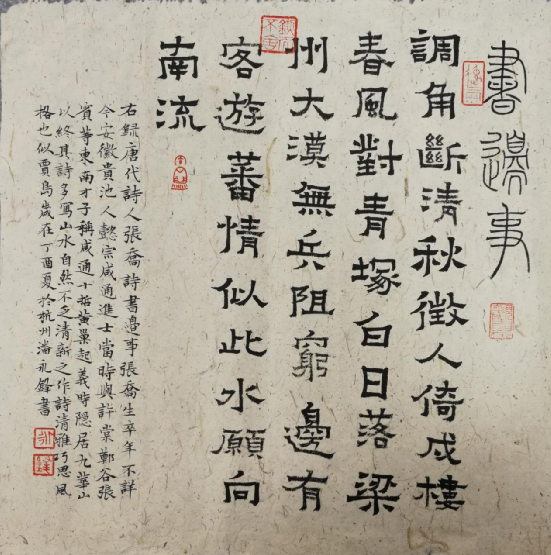 書邊事
調角斷清秋徵人倚戍樓
春風對青塚白日落梁
州大漠無兵阻窮邊有
客遊蕃情似此水願向
南流
右録唐代詩人張喬詩書邊事張喬生卒年不詳
今安徽貴池人懿宗咸通進士當時與許棠鄭谷張
賓等東南才子稱咸通十哲黄巢起義時隱居九華山
以終其詩多寫山水自然不乏清新之作詩清雅巧思風
格也似賈島歲在丁酉夏於杭州潘永鋒書